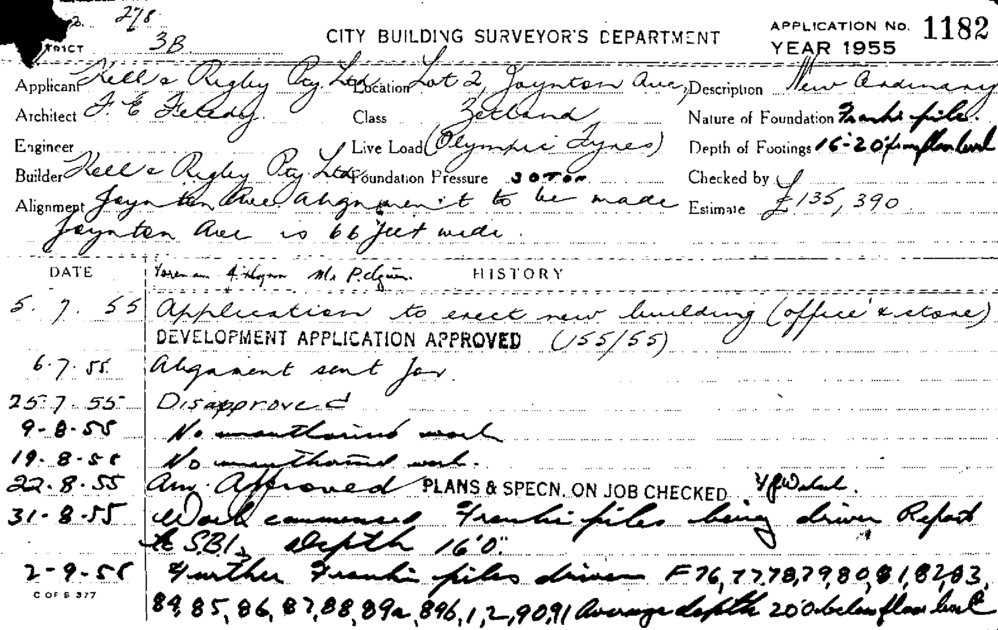 278
TRICT 3B CITY BUILDING SURVEYOR'S DEPARTMENT APPLICATION No. 1182
YEAR 1955
Applicant Kell & Rigby Pty Ltd Location Lot 2, Joynton Ave, Description New Ordinary
Architect F. E. Class Zetland Nature of Foundation Franki pile.
Engineer Live Load (Olympic Tyres) Depth of Footings 16-20' from floor level
Builder Kell & Rigby Pty Ltd Foundation Pressure 30 TON Checked by
Alignment Joynton Ave. Alignment to be made Estimate £135,390
Joynton Ave is 66 feet wide.
DATE Foreman Mr HISTORY
5. 7. 55 Application to erect new building (office & store)
DEVELOPMENT APPLICATION APPROVED (155/55)
6.7.55 Alignment sent for.
25.7.55 Disapproved
9-8-55 No unauthorised work
19.8.55 No unauthorised work.
22.8.55 Am. Approved PLANS & SPECN. ON JOB CHECKED
31-8-55 Work commenced Franki piles being driven Report
to S.B.I. Depth 16'0"
2-9-55 Further Franki piles driven F76,77,78,79,80,81,82,83,
C OF S 377
84,85,86,87,88,89a,89b,1,2,90,91 Average depth 20'0 below floor level